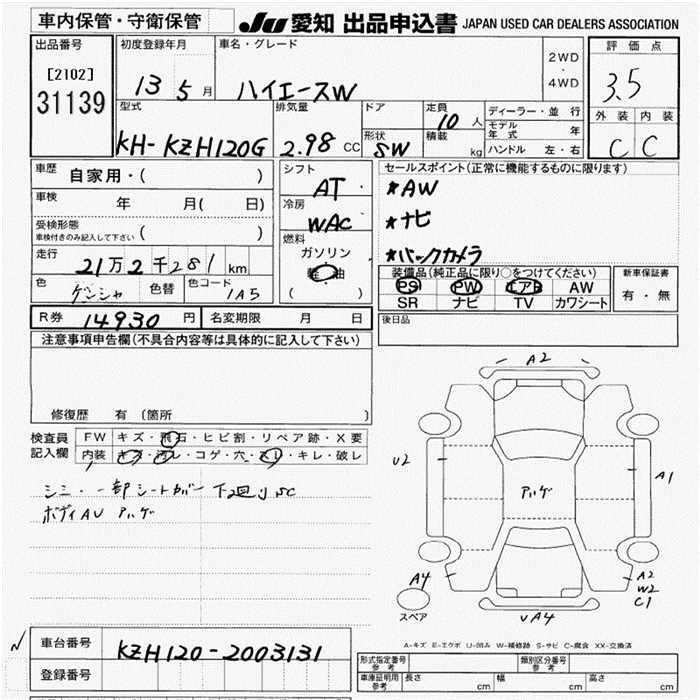 車内保管・守衛保管
JU 愛知 出品申込書 JAPAN USED CAR DEALERS ASSOCIATION
出品番号
[2102]
31139
初度登録年月
13 5 月
車名・グレード
ハイエースW
2WD
・
4WD
評価点
3.5
外装 内装
C C
型式
KH-KZH120G
排気量
2.98 CC
ドア
形状
SW
定員
10 人
積載
kg
ディーラー・並行
モデル年式 年
ハンドル 左・右
車歴
自家用・( )
車検
年 月( 日)
受検形態
車検付きのみ記入して下さい ( )
走行
21万2千281 km
色
ゲンシャ
色替
色コード
1A5
シフト
AT
冷房
WAC
燃料
ガソリン
軽油
( )
セールスポイント(正常に機能するものに限ります)
*AW
*ナビ
*バックカメラ
装備品(純正品に限り○をつけてください)
PS PW エアB AW
SR ナビ TV カワシート
新車保証書
有・無
R券 14930 円
名変期限 月 日
後日品
注意事項申告欄(不具合内容等は具体的に記入して下さい)
修復歴 有(箇所 )
検査員
記入欄
FW キズ・飛石・ヒビ割・リペア跡・X要
内装 キズ・汚レ・コゲ・穴・スレ・キレ・破レ
シミ・一部シートカバー 下廻りSC
ボディAU アハゲ
A2
U2
A1
アハゲ
A4
スペア
A2
W2
C1
UA4
A-キズ E-エクボ U-凹み W-補修跡 S-サビ C-腐食 XX-交換済
車台番号
KZH120-2003131
登録番号
形式指定番号
参考
類別区分番号
参考
車庫証明用
参考
長さ cm 幅 cm 高さ cm